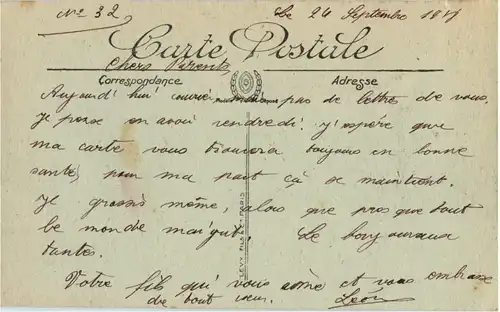 No 32, Le 24 Septembre 1917
Carte Postale
Chers Parents
Correspondance Adresse
Aujourd'hui pas de lettre de vous.
Je pense en avoir vendredi. j'espère que
ma carte vous trouvera toujours en bonne
santé, pour ma part çà se maintient.
Je grossis même, alors que presque tout
le monde maigrit. Le bonjour aux
tantes.
Votre fils qui vous aime et vous embrasse
de tout cœur. Léon
LEVY FILS & Cie PARIS